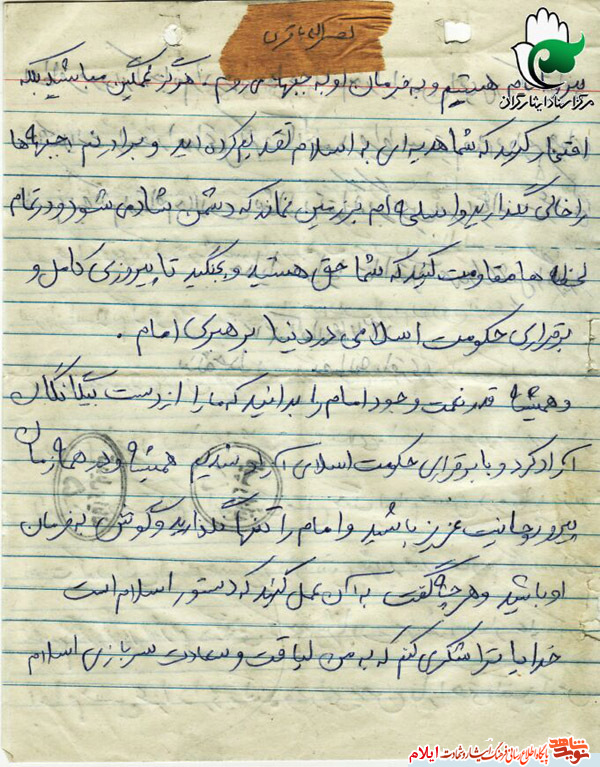 نصراله باقری
مرکز اسناد ایثارگران
پیرو امام هستیم و به فرمان او به جبهه می روم ، هرگز غمگین مباشید بلکه
افتخار کنید که شما هدیه ای به اسلام تقدیم کرده اید و برادرنم جبهه ها
را خالی نگذارید و اسلحه ام بر زمین نماند که دشمن شاد می شود و در تمام
لحظه ها مقاومت کنید که شما حق هستید و بجنگید تا پیروزی کامل و
برقراری حکومت اسلامی در دنیا برهبری امام .
و همیشه قدر نعمت وجود امام را بدانید که ما را از دست بیگانگان
آزاد کرد و با برقراری حکومت اسلامی آزاد شدیم همیشه و در همه زمان
پیرو روحانیت عزیز باشید و امام را تنها نگذارید و گوش بفرمان
او باشید و هر چه گفت به آن عمل کنید که دستور اسلام است
خدایا ترا شکری کنم که به من لیاقت و سعادت سربازی اسلام
نوید شاهد پایگاه اطلاع رسانی فرهنگ ایثار و شهادت ایلام